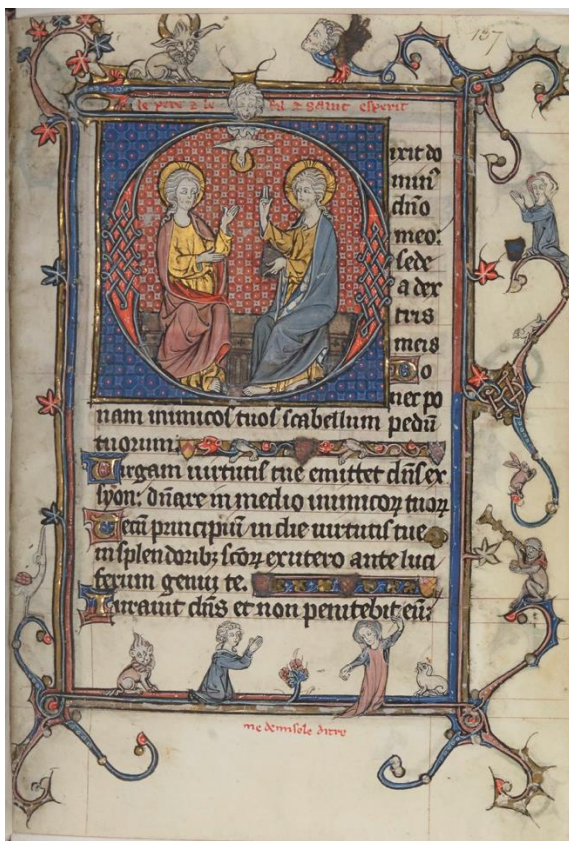 137
le pere & le fil & saint esperit
ixit do
min⁹
dn̄o
meo:
sede
a dex
tris
meis
Do
nec po
nam inimicos tuos scabellum pedū
tuorum
Virgam uirtutis tue emittet dn̄s ex
syon: dn̄are in medio inimicoꝝ tuoꝝ
Tecū principiū in die uirtutis tue
in splendoribꝫ sc̄oꝝ ex utero ante luci
ferum genui te.
Iurauit dn̄s et non penitebit eū: